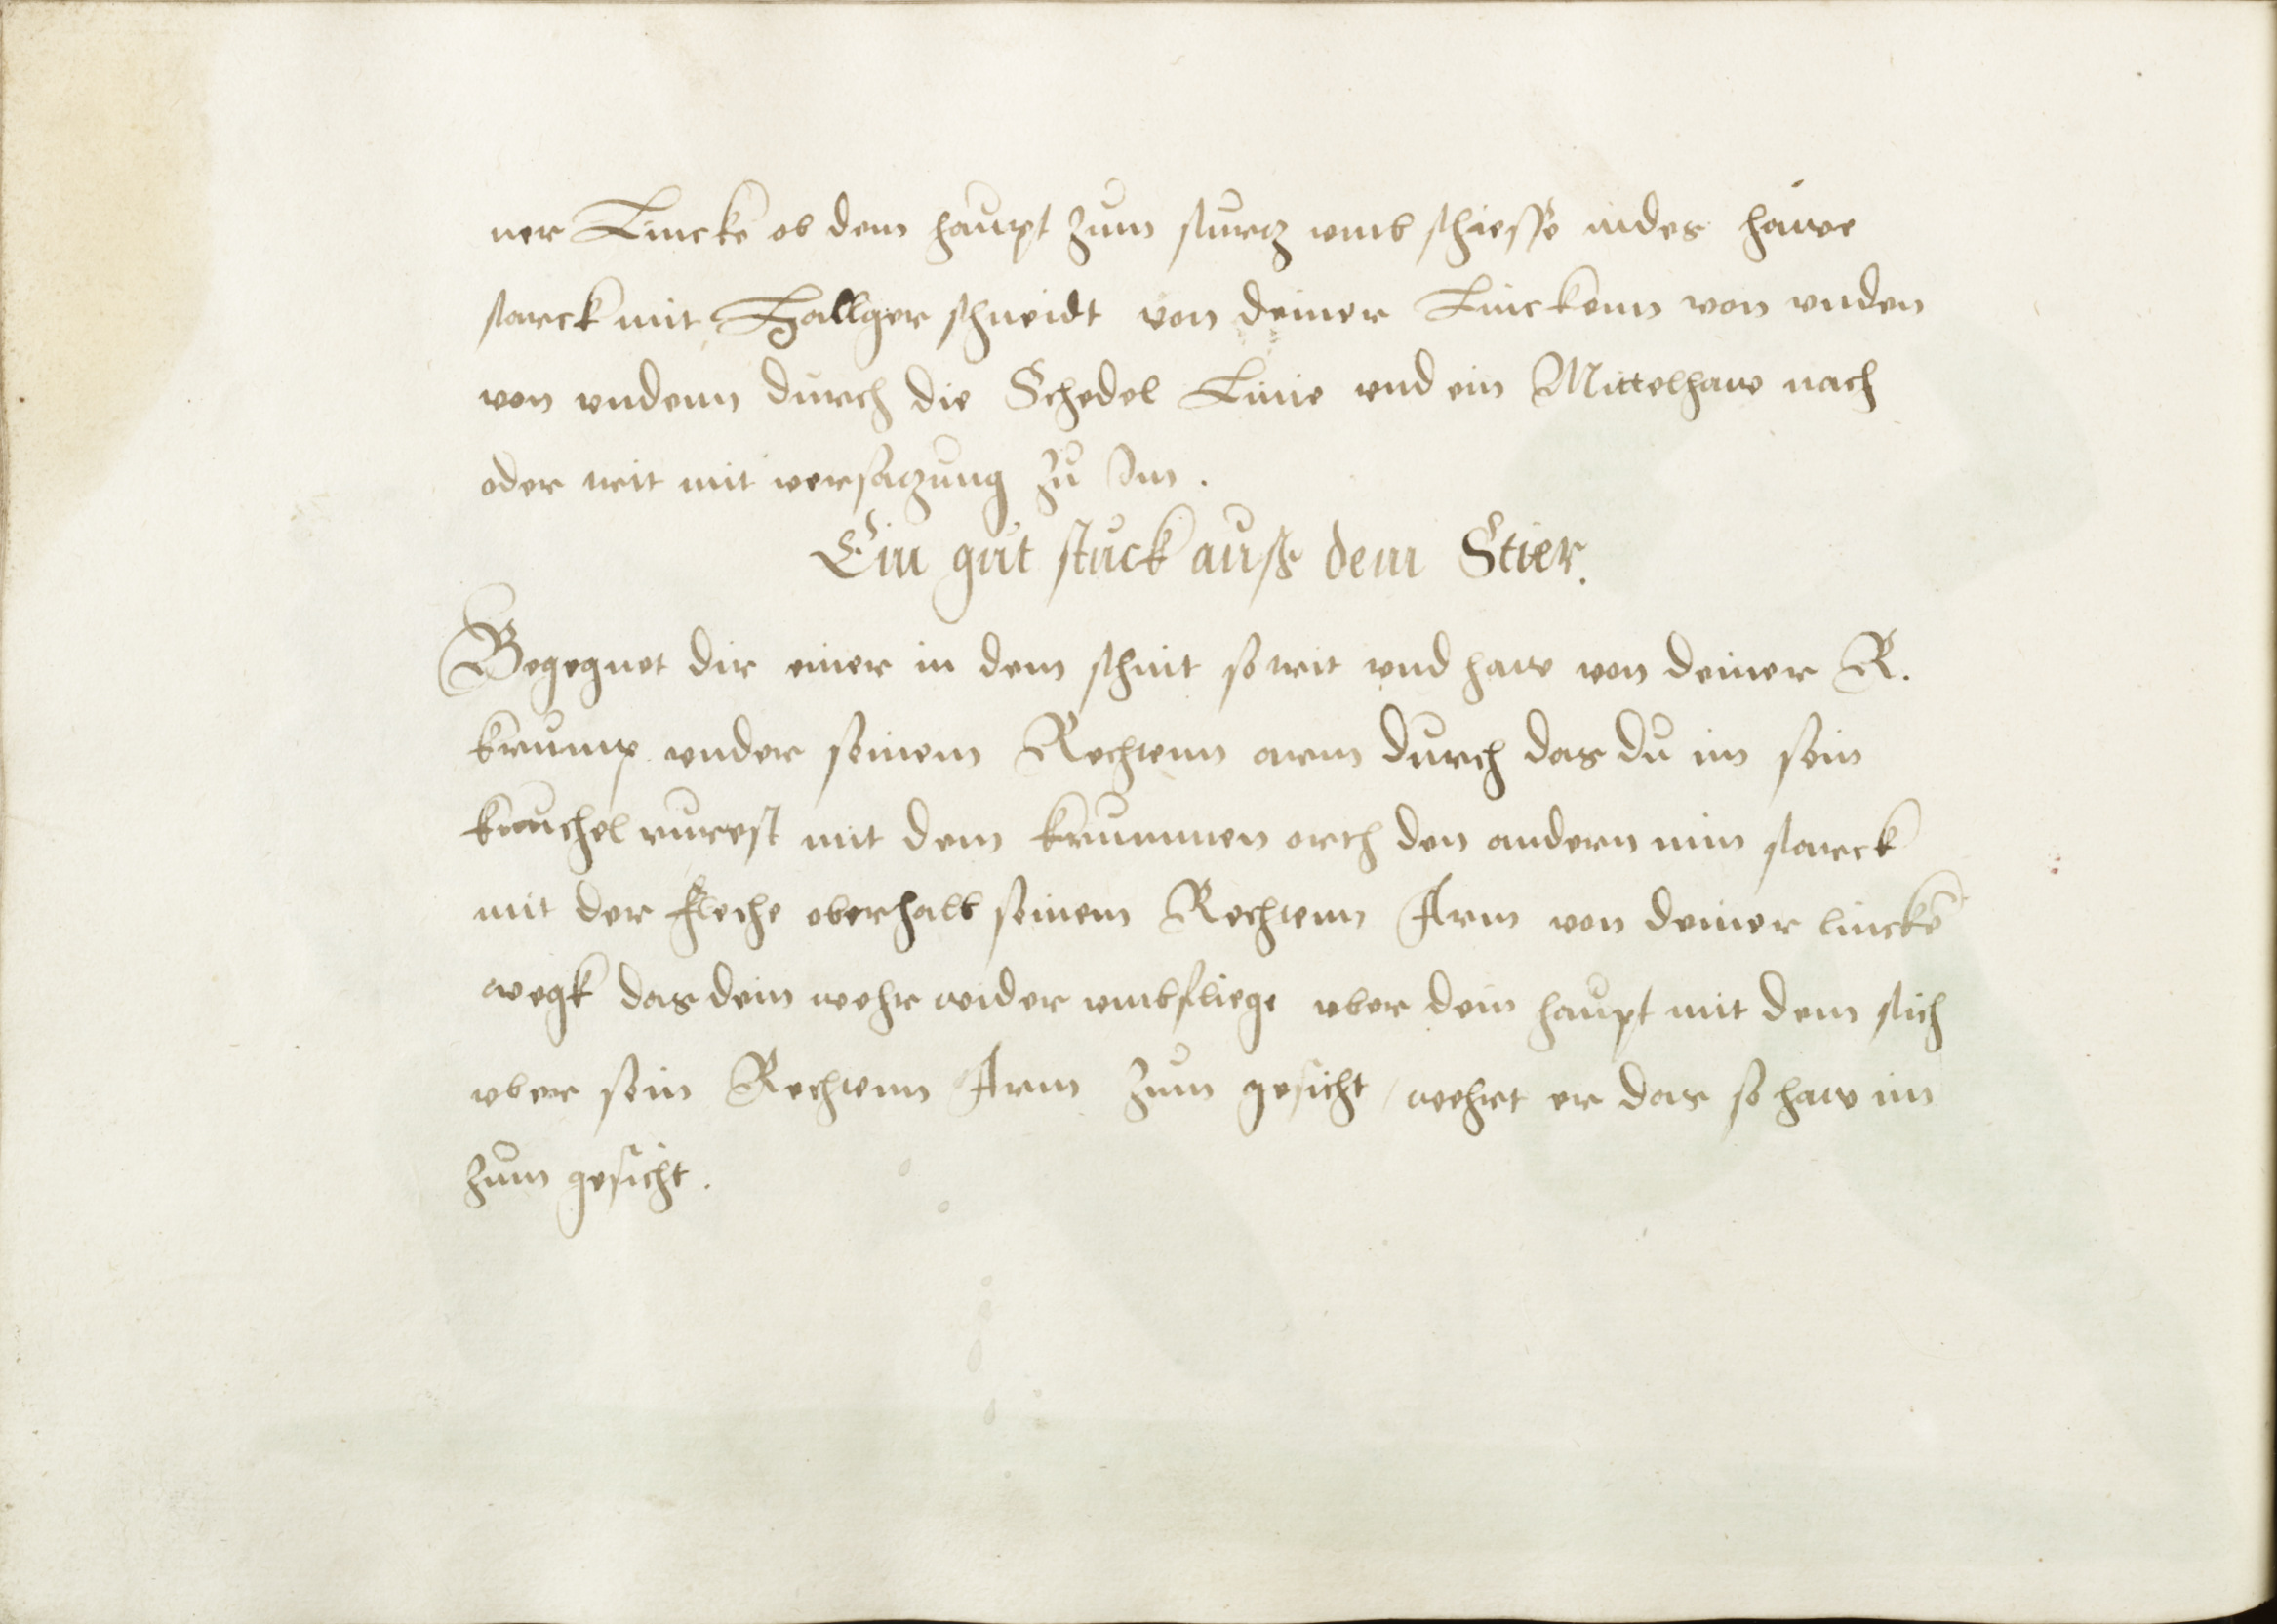 ner Lincke ob dem haupt zum sturtz vmb schiesse indes hauwe
starck mit Hallger schneidt von deiner Linckenn von vnden
von vndenn durch die Schedel Linie vnd ein Mittelhaw nach
oder trit mit versatzung zu Im.
Ein gút stúck aúß dem Stier.
Begegnet dir einer in dem schnit so trit vnd haw von deiner R.
krump vnder seinem Rechtenn arm durch das du im sein
knuchel rurest mit dem krummen orth den andern nim starck
mit der fleche oberhalb seinem Rechtenn Arm von deiner linckē
wegk das dein wehr wider vmbfliege vber dein haupt mit dem stich
vber sein Rechtenn Arm zum gesicht / wehrt er das so haw im
zum gesicht.